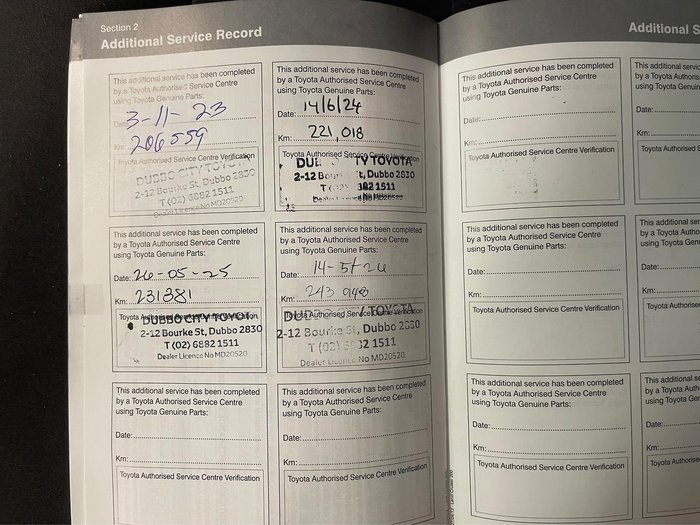 Section 2
Additional Service Record
This additional service has been completed
by a Toyota Authorised Service Centre
using Toyota Genuine Parts:
Date: 3-11-23
Km: 206559
Toyota Authorised Service Centre Verification
DUBBO CITY TOYOTA
2-12 Bourke St, Dubbo 2830
T (02) 6882 1511
Dealer Licence No MD20520
This additional service has been completed
by a Toyota Authorised Service Centre
using Toyota Genuine Parts:
Date: 14/6/24
Km: 221,018
Toyota Authorised Service Centre Verification
DUB TY TOYOTA
2-12 Bou t, Dubbo 2830
T ( 382 1511
No MD20520
This additional service has been completed
by a Toyota Authorised Service Centre
using Toyota Genuine Parts:
Date: 26-05-25
Km: 231381
Toyota Authorised Service Centre Verification
DUBBO CITY TOYOTA
2-12 Bourke St, Dubbo 2830
T (02) 6882 1511
Dealer Licence No MD20520
This additional service has been completed
by a Toyota Authorised Service Centre
using Toyota Genuine Parts:
Date: 14-5-26
Km: 243 948
Toyota Authorised Service Centre Verification
DU Y TOYOTA
2-12 Bourke St, Dubbo 2830
T (02) 6882 1511
Dealer Licence No MD20520
This additional service has been completed
by a Toyota Authorised Service Centre
using Toyota Genuine Parts:
Date:
Km:
Toyota Authorised Service Centre Verification
This additional service has been completed
by a Toyota Authorised Service Centre
using Toyota Genuine Parts:
Date:
Km:
Toyota Authorised Service Centre Verification
Additional S
This additional service has been completed
by a Toyota Authorised Service Centre
using Toyota Genuine Parts:
Date:
Km:
Toyota Authorised Service Centre Verification
This additional servic
by a Toyota Authoris
using Toyota Genuin
Date:
Km:
Toyota Authorised S
This additional service has been completed
by a Toyota Authorised Service Centre
using Toyota Genuine Parts:
Date:
Km:
Toyota Authorised Service Centre Verification
This additional ser
by a Toyota Autho
using Toyota Gen
Date:
Km:
Toyota Authorised
This additional service has been completed
by a Toyota Authorised Service Centre
using Toyota Genuine Parts:
Date:
Km:
Toyota Authorised Service Centre Verification
This additional se
by a Toyota Auth
using Toyota Ge
Date:
Km:
Toyota Authorise